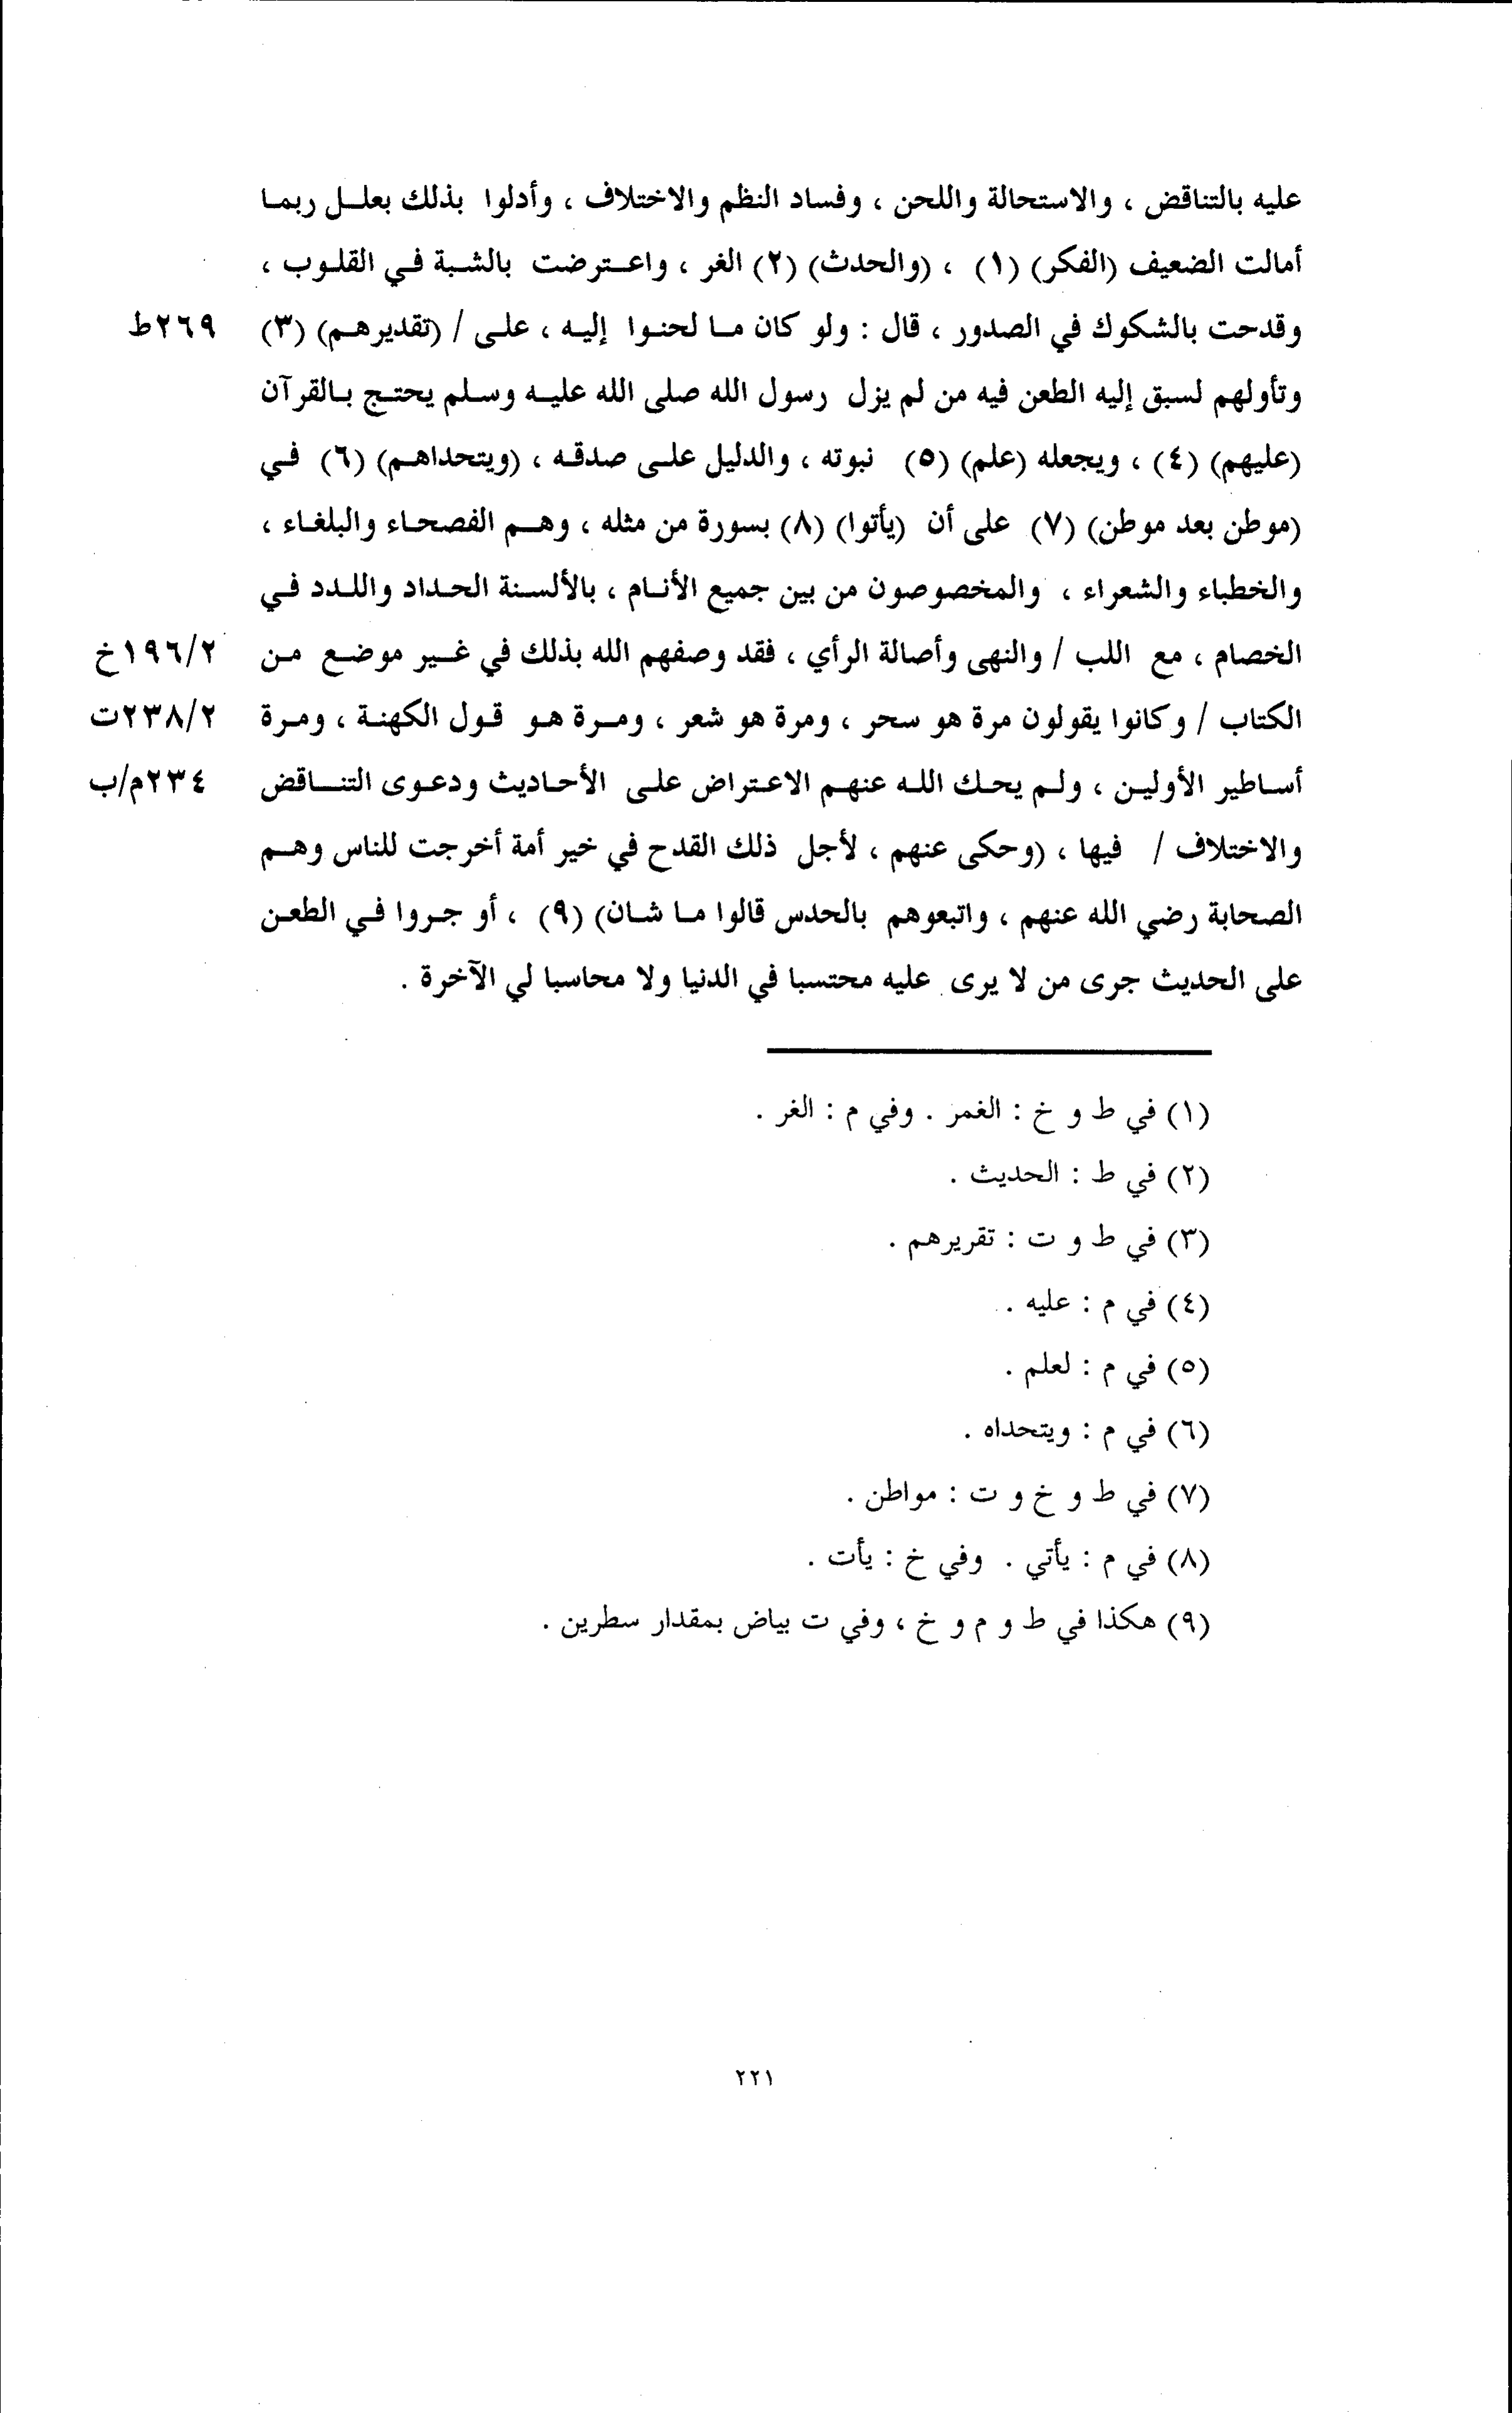 عليه بالتناقض ، والاستحالة واللحن ، وفساد النظم والاختلاف ، وأدلوا بذلك بعلل ربما
أمالت الضعيف (الفكر) (١) ، (والحدث) (٢) الغر ، واعترضت بالشبة في القلوب ،
وقدحت بالشكوك في الصدور ، قال : ولو كان ما لحنوا إليه ، على / (تقديرهم) (٣) ٢٦٩ط
وتأولهم لسبق إليه الطعن فيه من لم يزل رسول الله صلى الله عليه وسلم يحتج بالقرآن
(عليهم) (٤) ، ويجعله (علم) (٥) نبوته ، والدليل على صدقه ، (ويتحداهم) (٦) في
(موطن بعد موطن) (٧) على أن (يأتوا) (٨) بسورة من مثله ، وهم الفصحاء والبلغاء ،
والخطباء والشعراء ، والمخصوصون من بين جميع الأنام ، بالألسنة الحداد واللدد في
الخصام ، مع اللب / والنهى وأصالة الرأي ، فقد وصفهم الله بذلك في غير موضع من ١٩٦/٢خ
الكتاب / وكانوا يقولون مرة هو سحر ، ومرة هو شعر ، ومرة هو قول الكهنة ، ومرة ٢٣٨/٢ت
أساطير الأولين ، ولم يحك الله عنهم الاعتراض على الأحاديث ودعوى التناقض ٢٣٤م/ب
والاختلاف / فيها ، (وحكى عنهم ، لأجل ذلك القدح في خير أمة أخرجت للناس وهم
الصحابة رضي الله عنهم ، واتبعوهم بالحدس قالوا ما شان) (٩) ، أو جروا في الطعن
على الحديث جرى من لا يرى عليه محتسبا في الدنيا ولا محاسبا لي الآخرة .
(١) في ط و خ : الغمر . وفي م : الغر .
(٢) في ط : الحديث .
(٣) في ط و ت : تقريرهم .
(٤) في م : عليه .
(٥) في م : لعلم .
(٦) في م : ويتحداه .
(٧) في ط و خ و ت : مواطن .
(٨) في م : يأتي . وفي خ : يأت .
(٩) هكذا في ط و م و خ ، وفي ت بياض بمقدار سطرين .
٢٢١